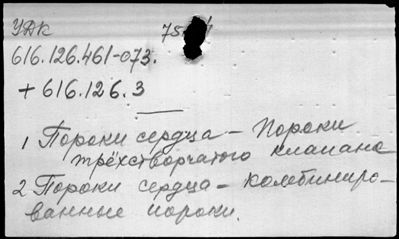 УДК
616.126.461-073.
+ 616.126.3
1 Пороки сердца – Пороки
трёхстворчатого клапана
2 Пороки сердца – комбиниро-
ванные пороки.